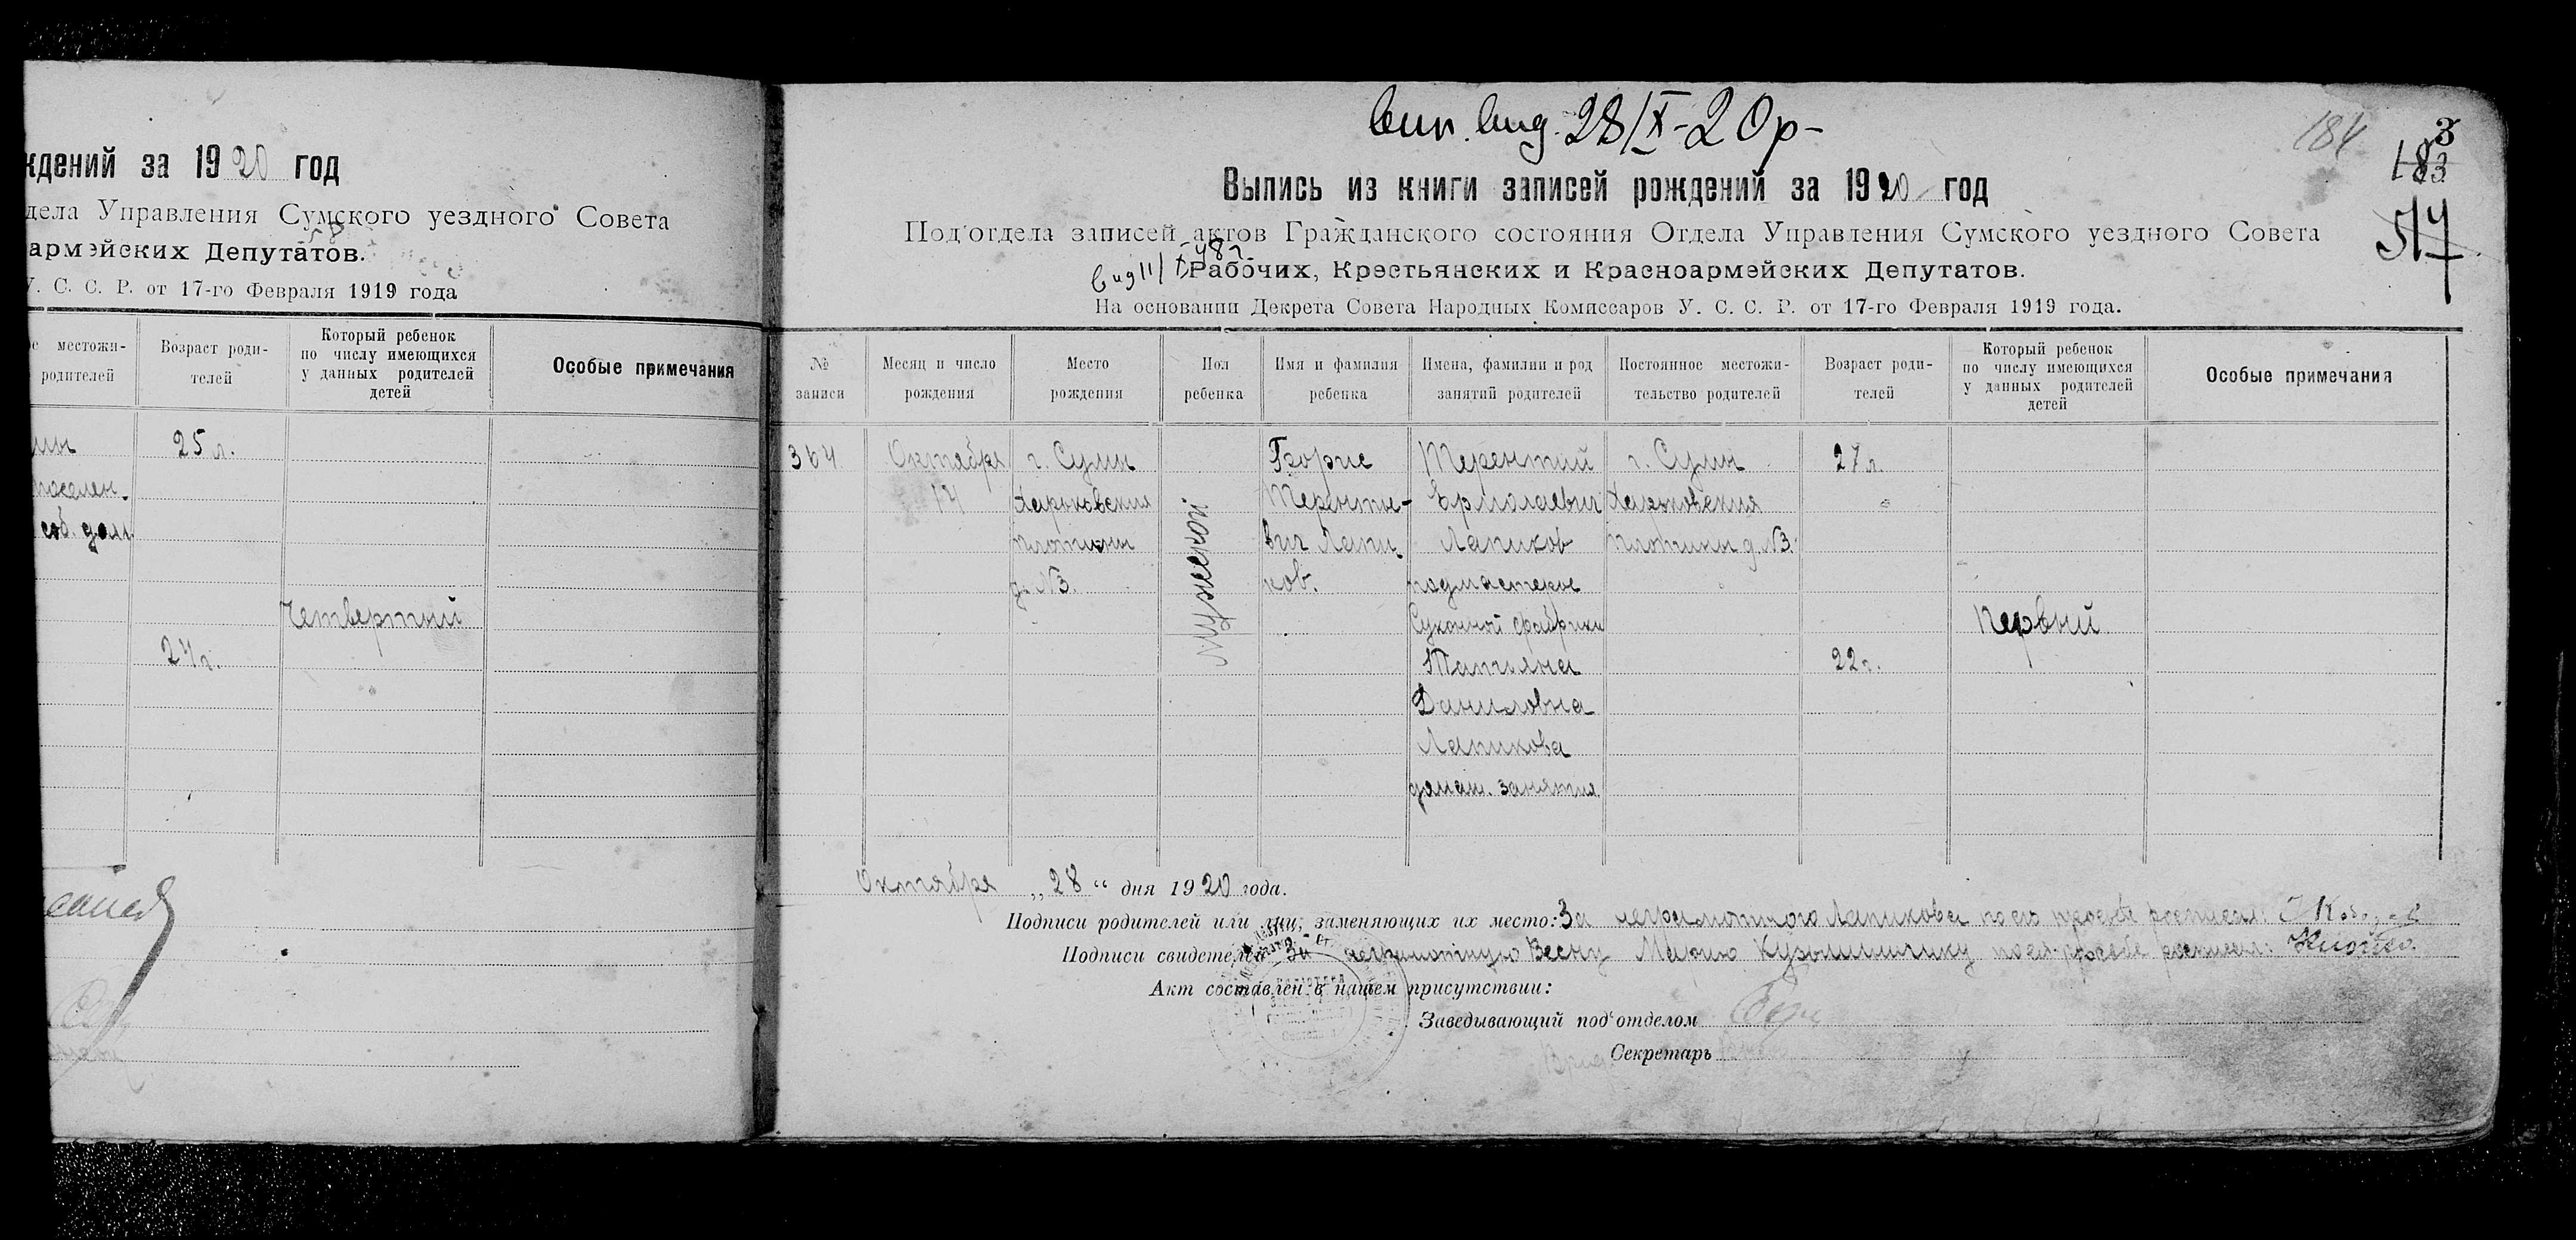 ждений за 1920 год
дела Управления Сумского уездного Совета
армейских Депутатов.
У. С. С. Р. от 17-го Февраля 1919 года
местожи-
родителей
Возраст роди-
телей
Который ребенок
по числу имеющихся
у данных родителей
детей
Особые примечания
25 л.
поселен.
соб. дом
Четвертый
24 г.
28/X-20р-
184
3
183
517
Выпись из книги записей рождений за 1920 год
Под'отдела записей актов Гражданского состояния Отдела Управления Сумского уездного Совета
Рабочих, Крестьянских и Красноармейских Депутатов.
На основании Декрета Совета Народных Комиссаров У. С. С. Р. от 17-го Февраля 1919 года.
№
записи
Месяц и число
рождения
Место
рождения
Пол
ребенка
Имя и фамилия
ребенка
Имена, фамилии и род
занятий родителей
Постоянное местожи-
тельство родителей
Возраст роди-
телей
Который ребенок
по числу имеющихся
у данных родителей
детей
Особые примечания
364
Октября
14
г. Сумы
Харьковская
плотина
д. №3.
мужской
Борис
Теренть-
вич Лапи
ков.
Терентий
Ермолаевич
Лапиков
подмастерье
Суконной фабрики
Татьяна
Даниловна
Лапикова
домаш. занятия
г. Сумы
Харьковская
плотина д. №3.
27 л.
22 г.
Первый
Октября „28“ дня 1920 года.
Подписи родителей или лиц, заменяющих их место: За неграмотного Лапикова по его просьбе расписал:
Подписи свидетелей За неграмотную Весну Марию Кузьминичну по ея просьбе расписал:
Акт составлен в нашем присутствии:
Заведывающий под'отделом
Секретарь